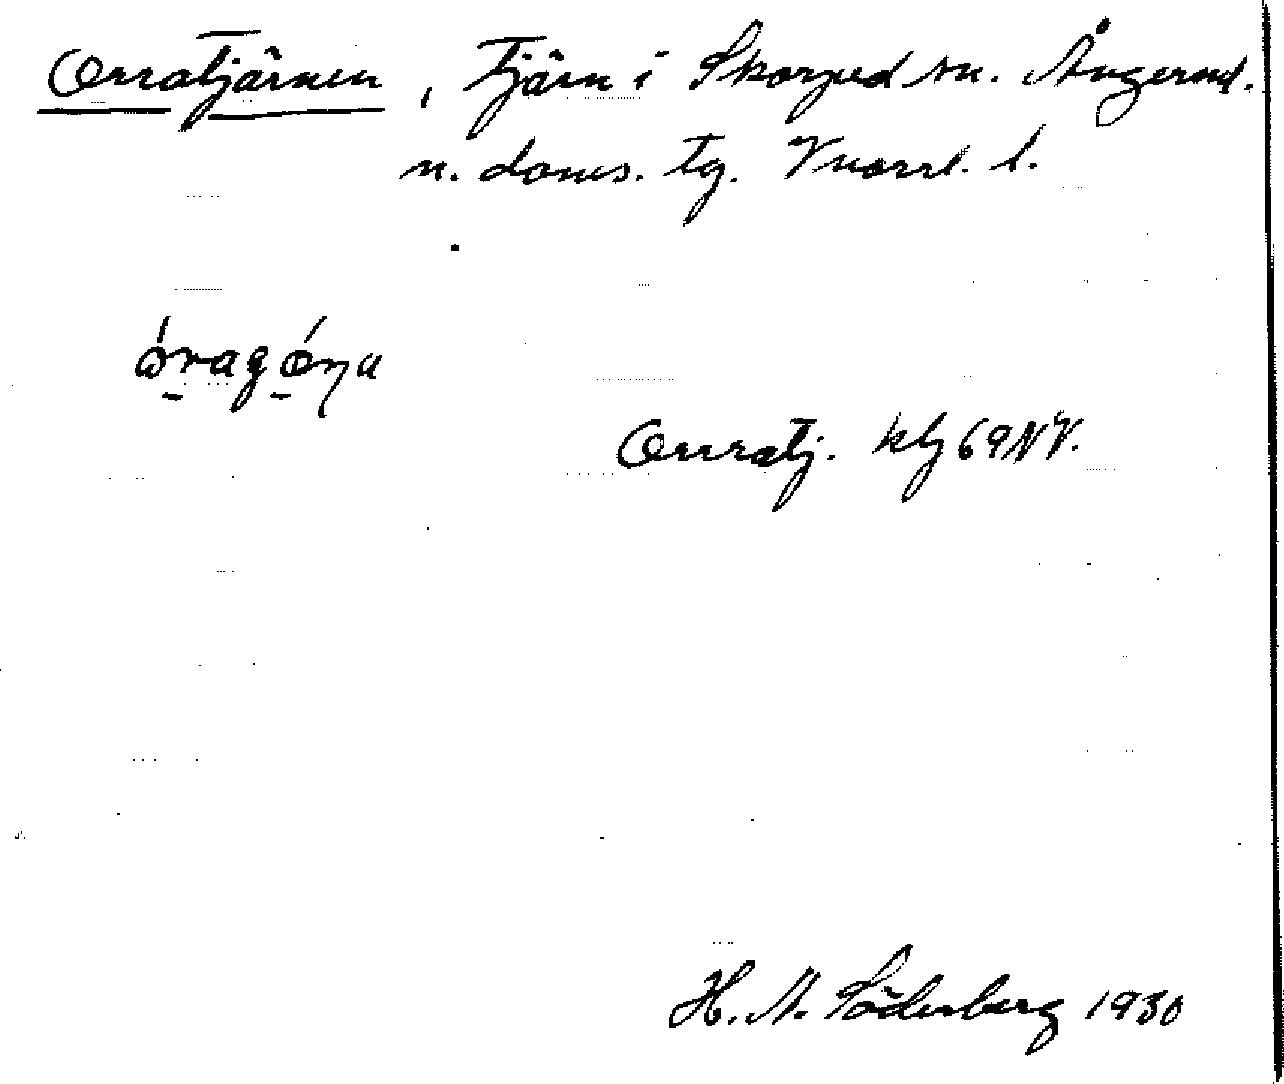 Orratjärnen, Tjärn i Skorped sn. Ångerml.
n. doms. tg. Vnorrl. l.
óragǿŋa
Orratj. kbj 69 NV.
H. N. Söderberg 1930